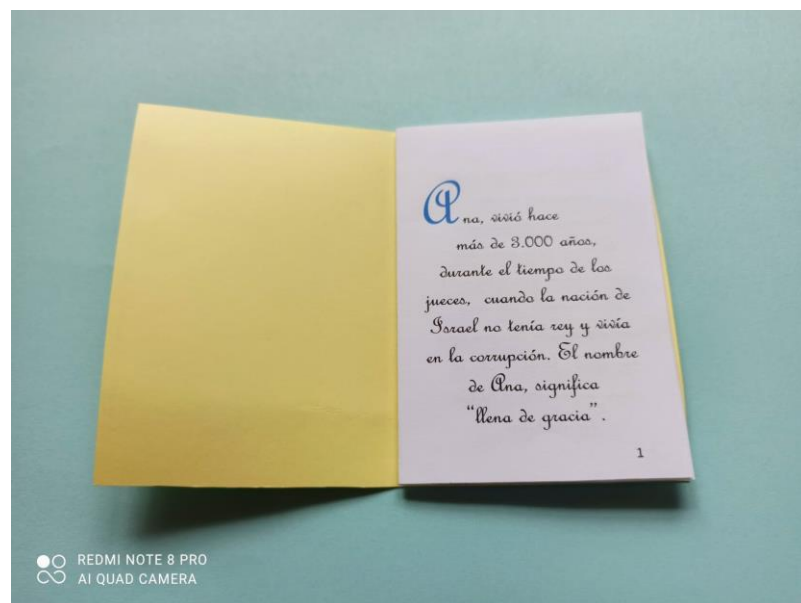 Ana, vivió hace
más de 3.000 años,
durante el tiempo de los
jueces, cuando la nación de
Israel no tenía rey y vivía
en la corrupción. El nombre
de Ana, significa
“llena de gracia”.
1
REDMI NOTE 8 PRO
AI QUAD CAMERA